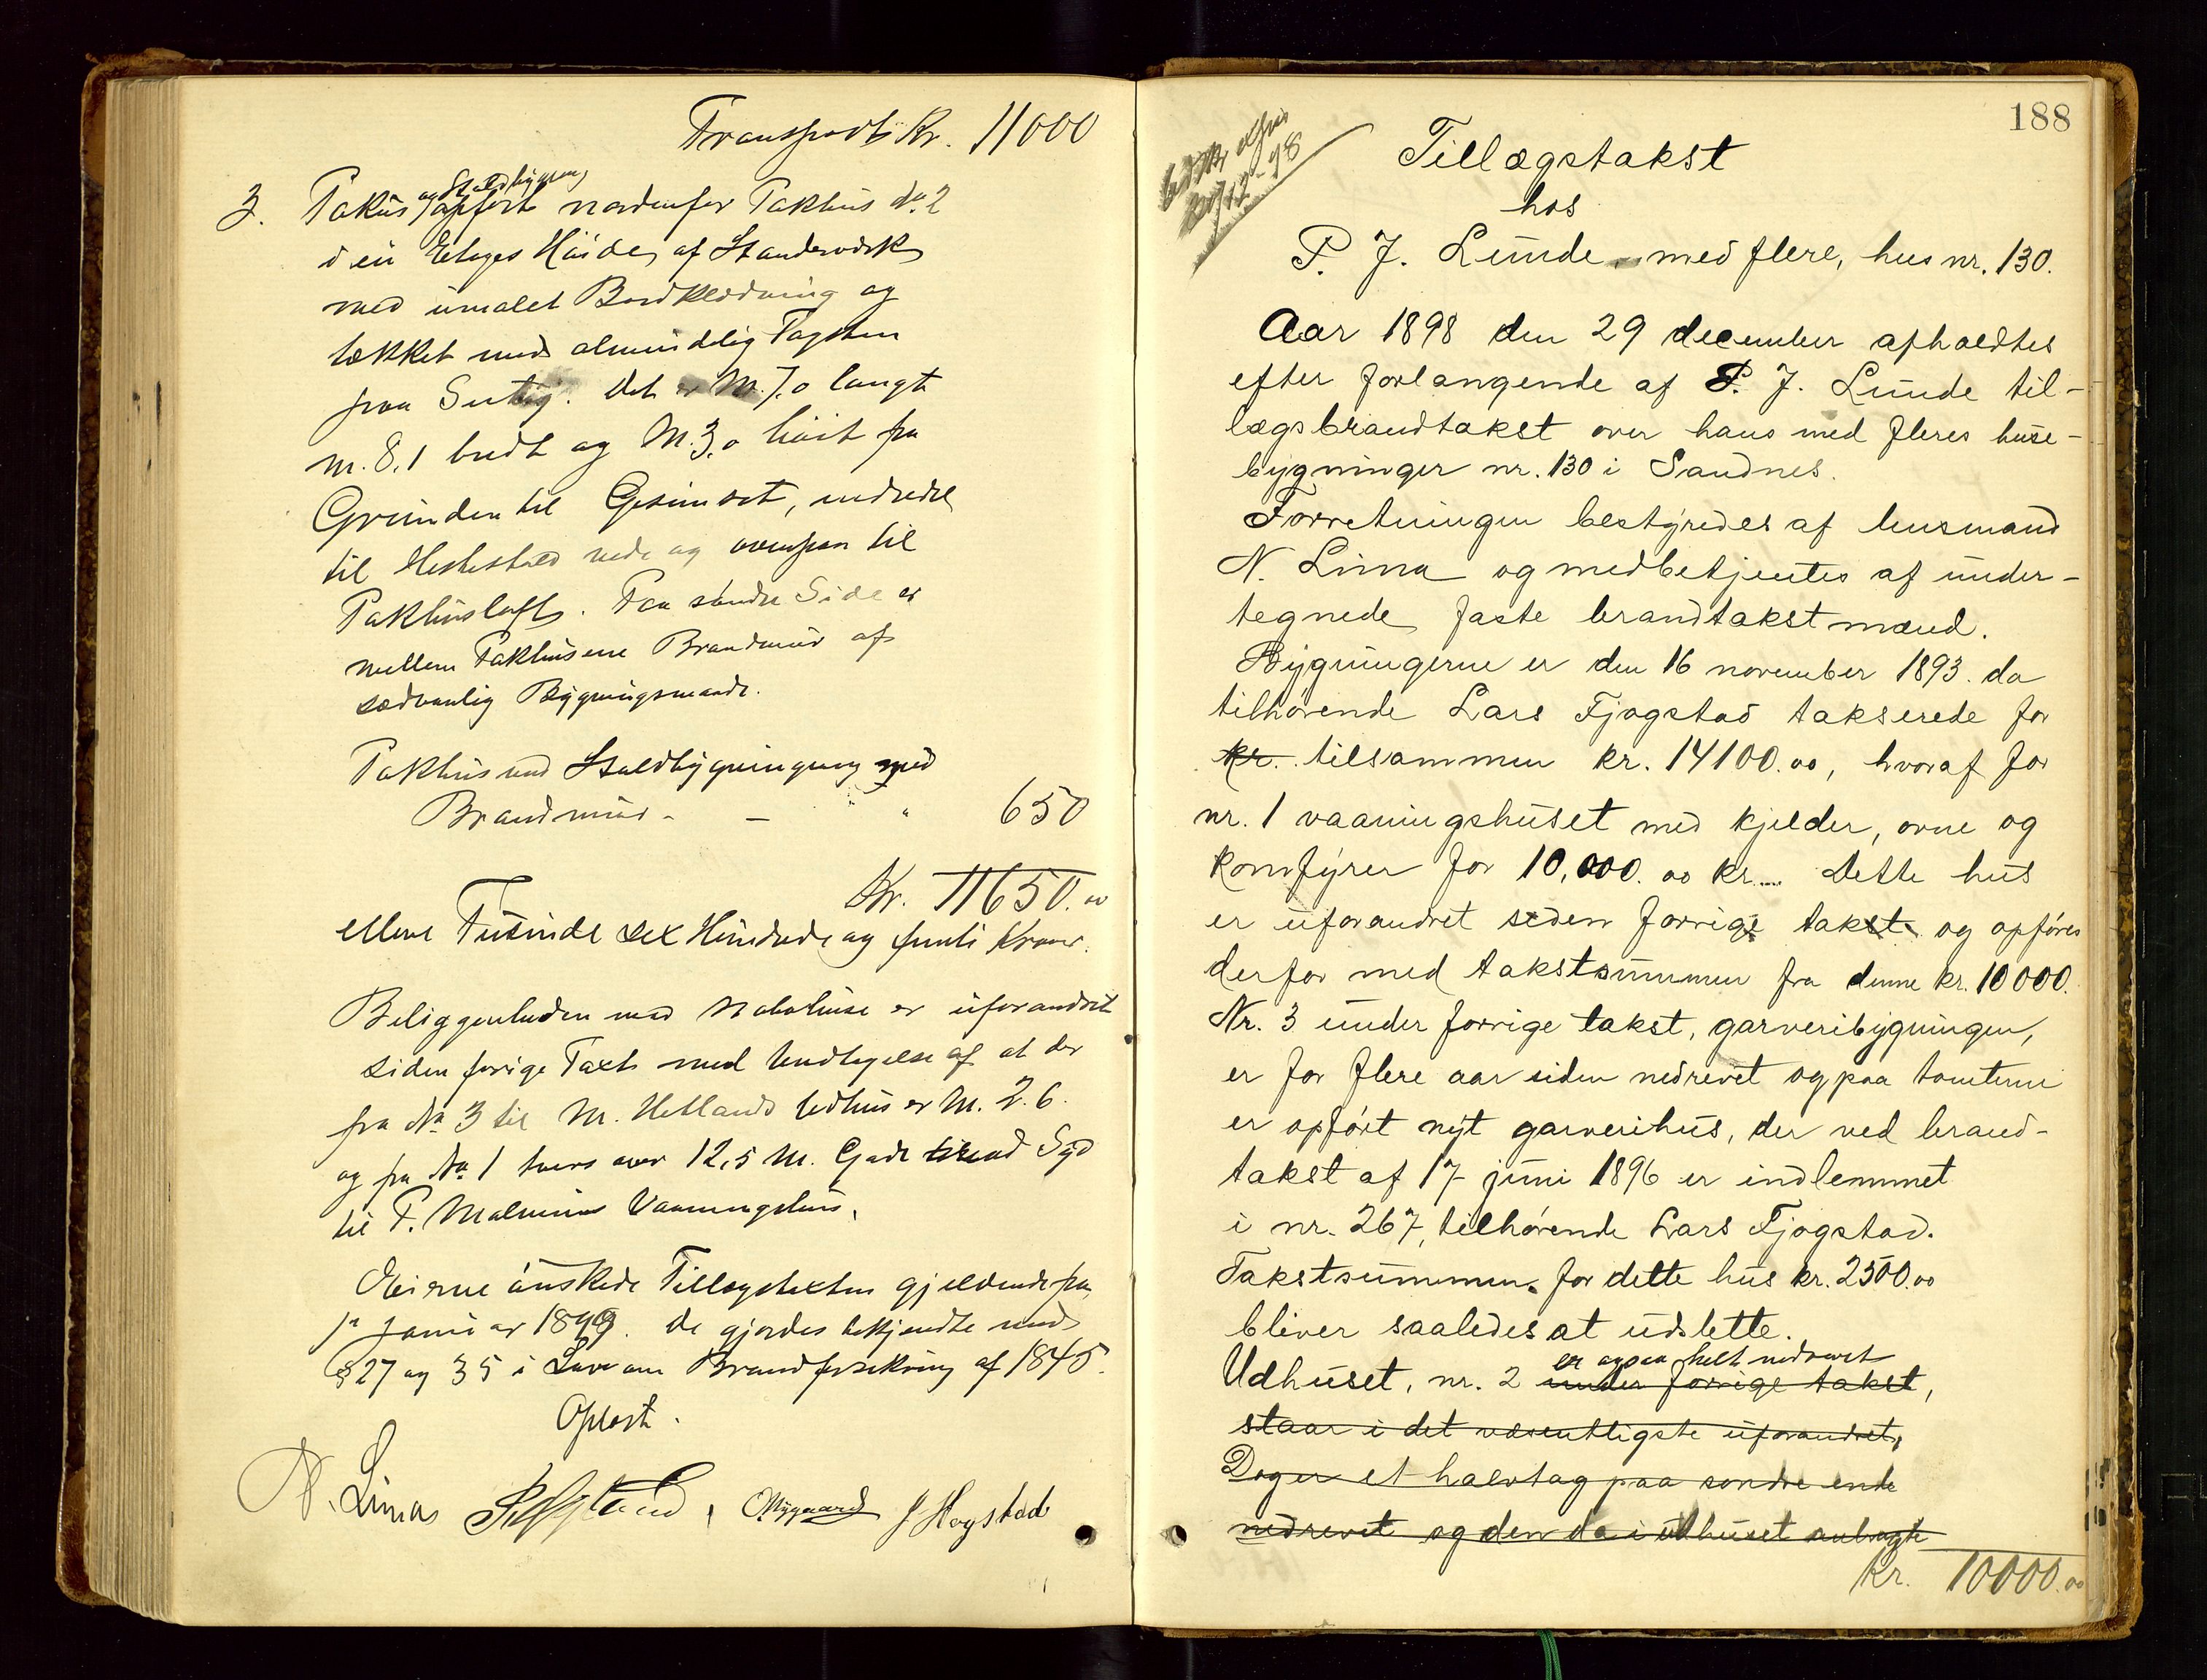 Transport Kr. 11000
og Staldbygning
3. Pakus opført nordenfor Pakhus No 2
i en Etages Høide af Standerverk
med umalet Bordklædning og
tækket med almindelig Tagsten
paa Sutag. Det er M. 7,0 langt
m. 8,1 bredt og M. 3,0 høit fra
Grunden til Gesimset, indredet
til Hestestald nede og ovenpaa til
Pakhusloft. Paa søndre Side er
mellem Pakhusene Brandmur af
sædvanlig Bygningsmaade.
Pakhus med Staldbygningen med
Brandmur - - " " 650
Kr. 11650.00
elleve Tusinde sex Hundrede og femti Kroner.
Beliggenheden med Nabohuse er uforandret
siden forrige Taxt med Undtagelse af at der
fra No 3 til M. Hetlands Udhus er M. 2.6.
og fra No 1 tvers over 12,5 M. Gade mod Syd
til P. Malmins Vaaningshus.
Eierne ønskede Tillægstakten gjældende fra
1ste Januar 1899. De gjordes bekjendte med
§ 27 og 35 i Lov om Brandforsikring af 1845.
Oplæst.
N. Lima , O Nygaard J Hogstad
188
29/12-98
Tillægstakst
hos
P. J. Lunde med flere, hus nr. 130.
Aar 1898 den 29 december afholdtes
efter forlangende af P. J. Lunde til-
lægsbrandtakst over hans med fleres huse-
bygninger nr. 130 i Sandnes.
Forretningen bestyredes af lensmand
N. Lima og medbetjentes af under-
tegnede faste brandtakstmænd.
Bygningerne er den 16 november 1893. da
tilhørende Lars Fjogstad takserede for
kr. tilsammen kr. 14100.00, hvoraf for
nr. 1 vaaningshuset med kjelder, ovne og
komfyrer for 10,000.00 kr. Dette hus
er uforandret siden forrige takst og opføres
derfor med takstsummen fra denne kr. 10000.
Nr. 3 under forrige takst, garveribygningen,
er for flere aar siden nedrevet og paa tomterne
er opført nyt garverihus, der ved brand-
takst af 17 juni 1896 er indlemmet
i nr. 267, tilhørende Lars Fjogstad.
Takstsummen for dette hus kr. 2500.00
bliver saaledes at udslette.
er ogsaa helt nedrevet
Udhuset, nr. 2 under forrige takst,
staar i det væsentligste uforandret,
Dog er et halvtag paa søndre ende
nedrevet og den da i udhuset anbragte
Kr. 10000.00